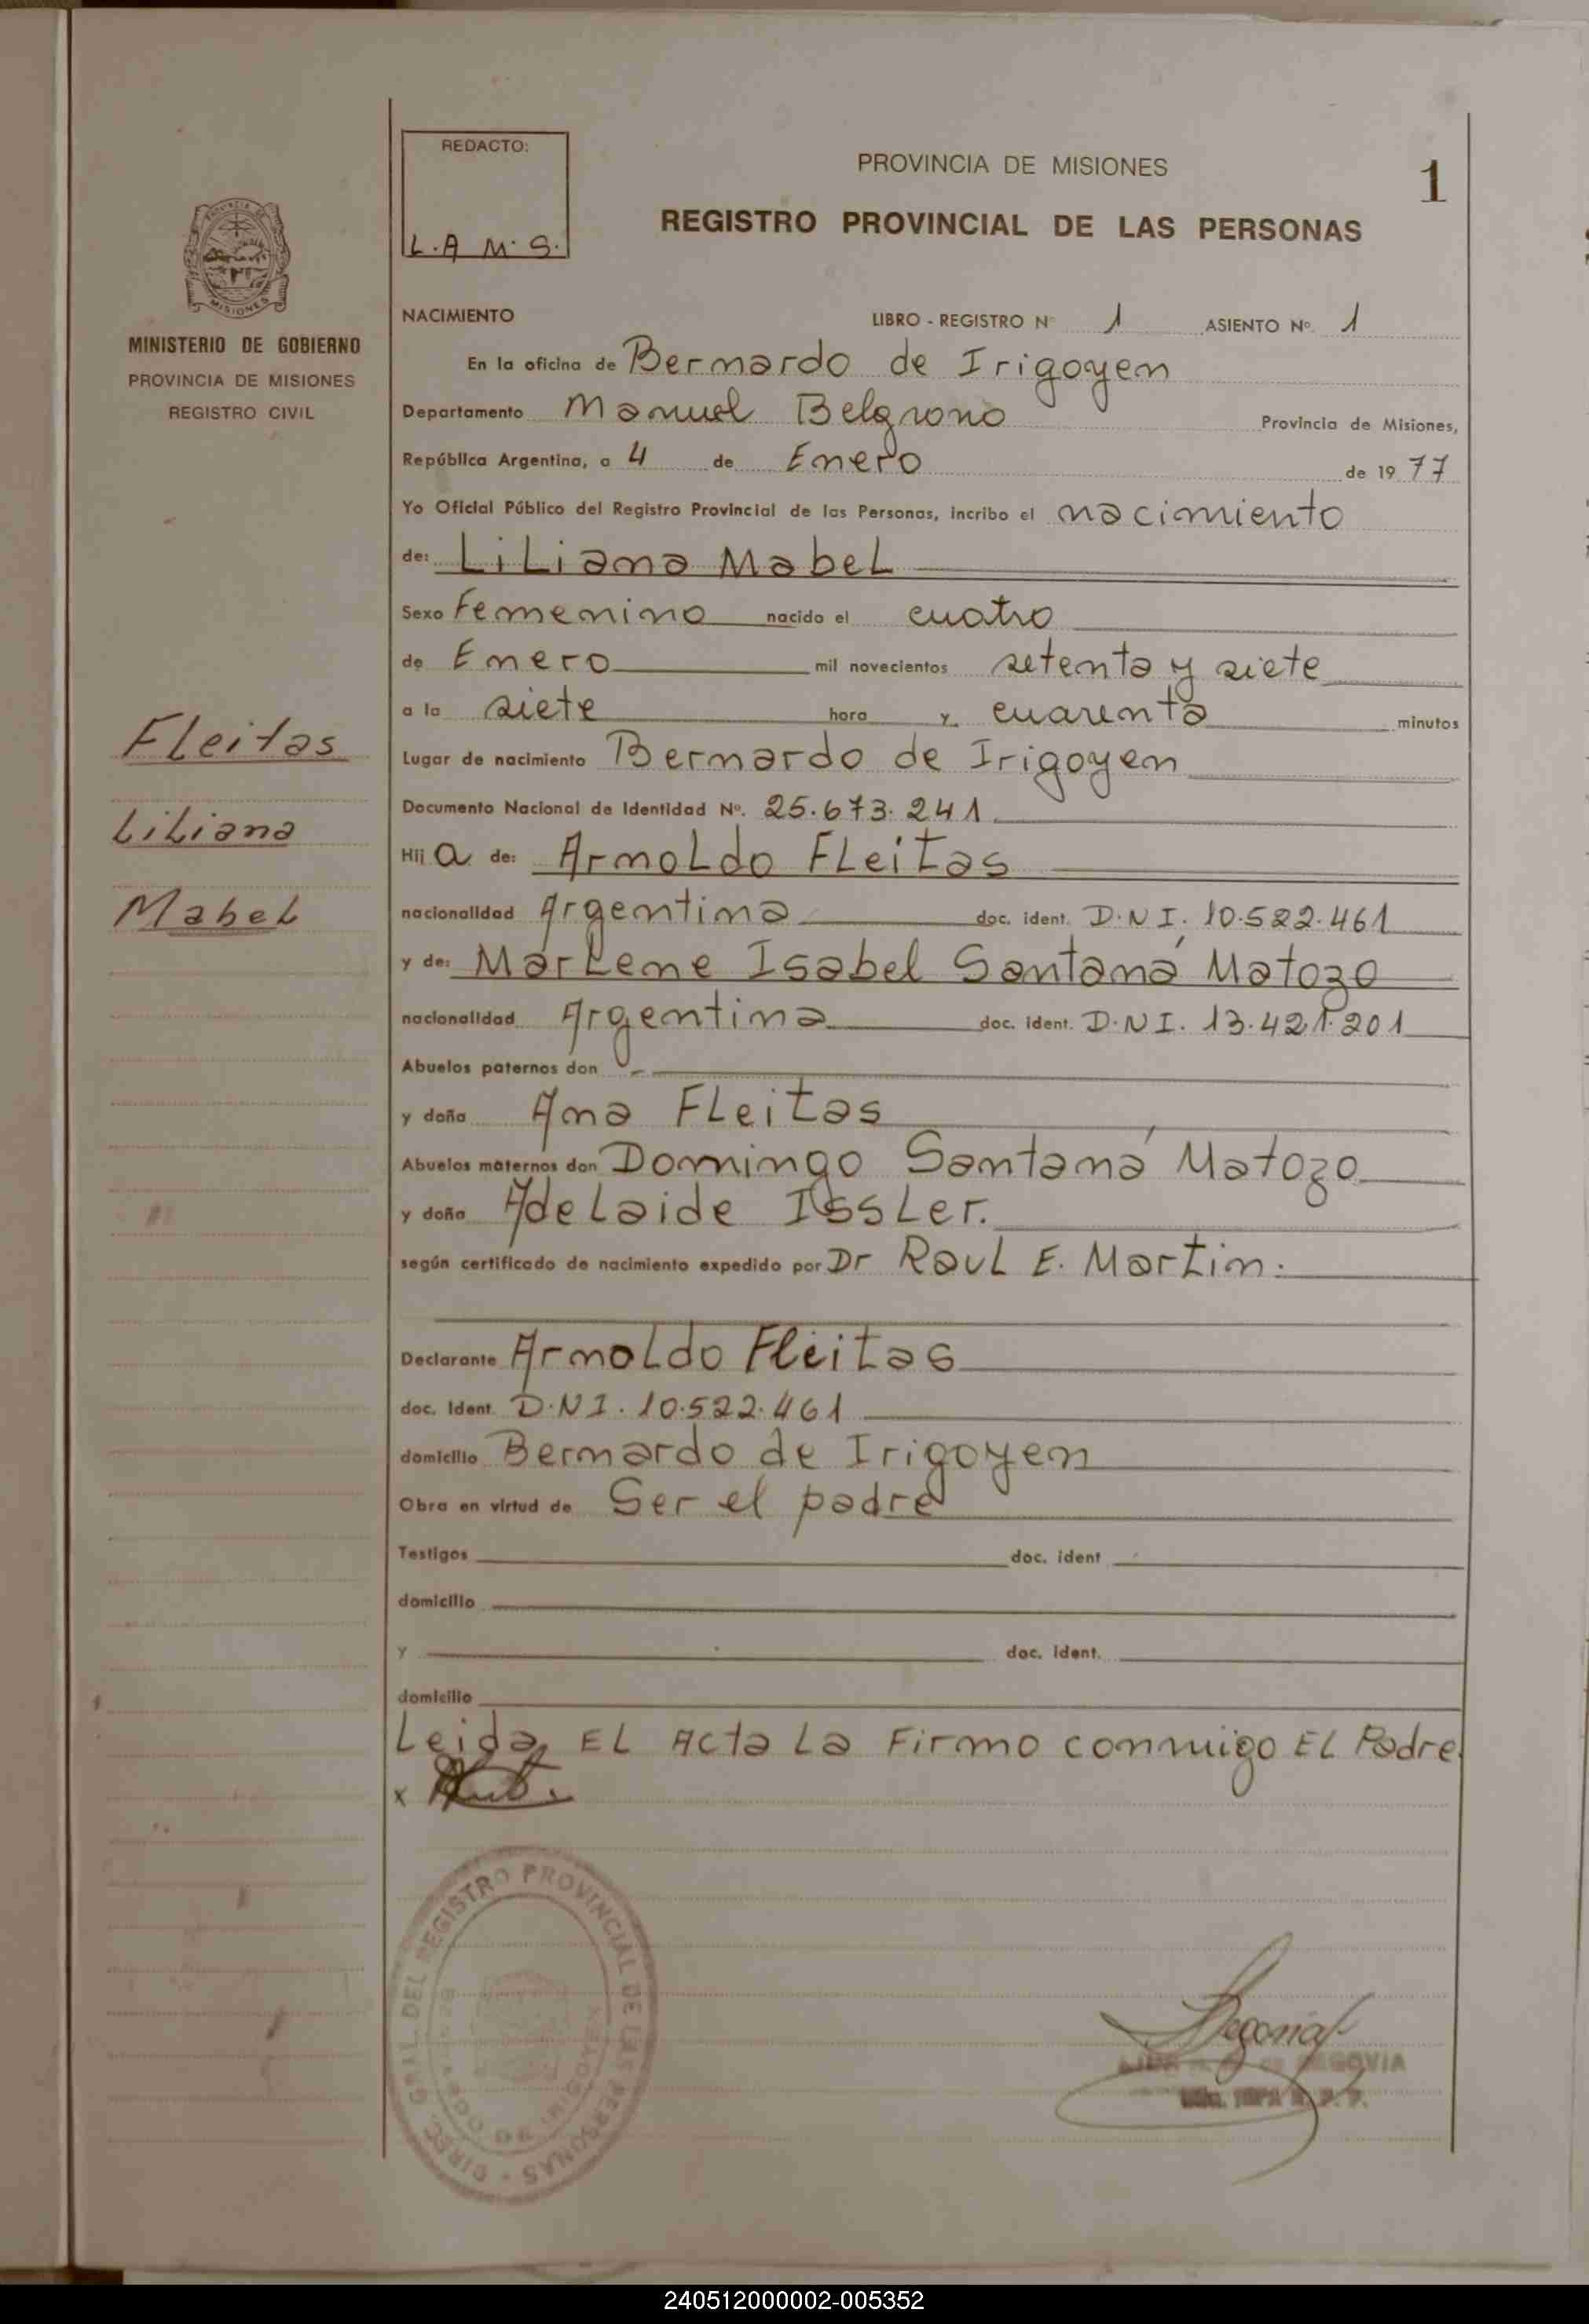 REDACTO:
L.A M. S.
PROVINCIA DE MISIONES
1
REGISTRO PROVINCIAL DE LAS PERSONAS
PROVINCIA DE
MISIONES
MINISTERIO DE GOBIERNO
PROVINCIA DE MISIONES
REGISTRO CIVIL
NACIMIENTO LIBRO - REGISTRO Nº 1 ASIENTO Nº 1
En la oficina de Bernardo de Irigoyen
Departamento Manuel Belgrano Provincia de Misiones,
República Argentina, a 4 de Enero de 1977
Yo Oficial Público del Registro Provincial de las Personas, incribo el nacimiento
de: Liliana Mabel
Sexo Femenino nacido el cuatro
de Enero mil novecientos setenta y siete
a la siete hora y cuarenta minutos
Fleitas
Liliana
Mabel
Lugar de nacimiento Bernardo de Irigoyen
Documento Nacional de Identidad Nº. 25.673.241
Hij a de: Arnoldo Fleitas
nacionalidad Argentina doc. ident. D.N.I. 10.522.461
y de: Marlene Isabel Santaná Matozo
nacionalidad Argentina doc. ident. D.N.I. 13.421.201
Abuelos paternos don -
y doña Ana Fleitas
Abuelos maternos don Domingo Santaná Matozo
y doña Adelaide Issler.
según certificado de nacimiento expedido por Dr Raul E. Martin.
Declarante Arnoldo Fleitas
doc. ident. D.N.I. 10.522.461
domicilio Bernardo de Irigoyen
Obra en virtud de Ser el padre
Testigos doc. ident
domicilio
y doc. ident.
domicilio
Leida, El Acta La Firmo conmigo El Padre
x
DIREC. GRAL. DEL REGISTRO PROVINCIAL DE LAS PERSONAS
BERNARDO DE IRIGOYEN
DE SEGOVIA
240512000002-005352